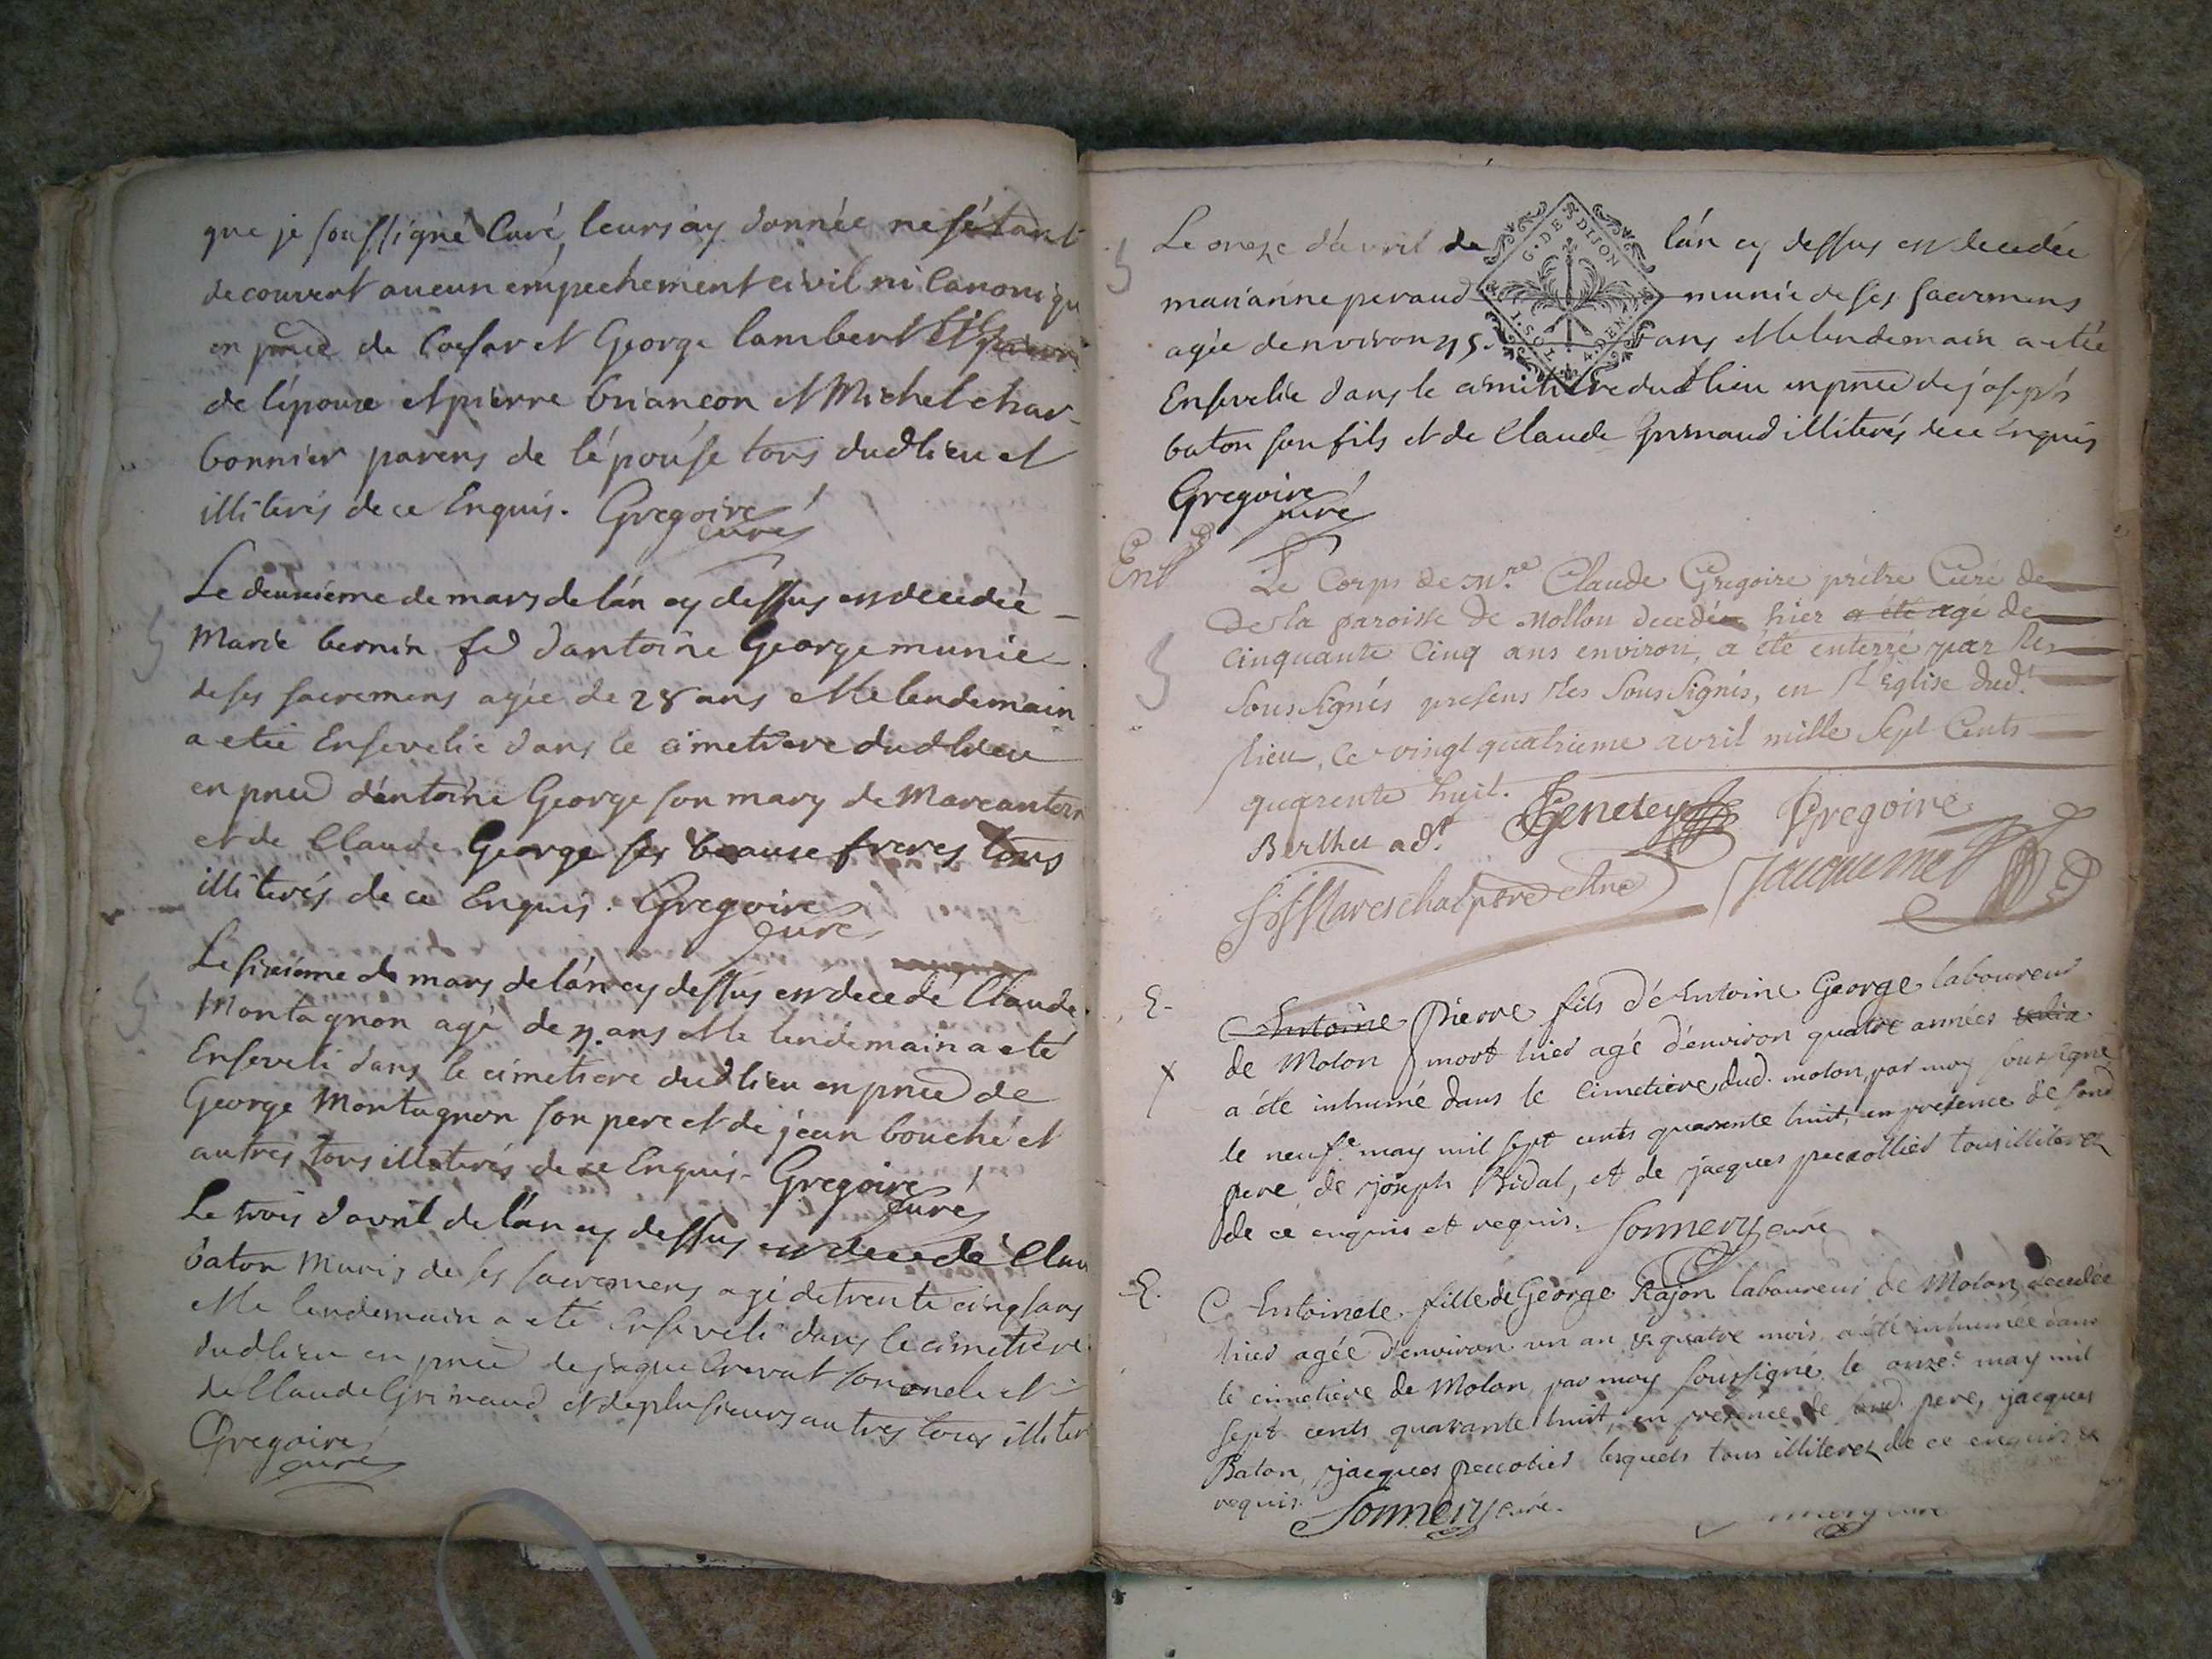 que je soussigné Curé leurs ay donnée ne sétant
decouvert aucun empechement civil ni Canoniqu
en pnce de Coesar et George lambert
de lépouse et pierre briancon et Michel char-
bonnier parens de lépouse tous dud lieu et
illiterés de ce Enquis. Gregoire
curé
Le deuxième de mars de lán cy dessus est decedée
Marie bernin fe dantoine George munie
de ses sacremens agée de 28 ans et le lendemain
a etée Ensevelie dans le cimetiere dud lieu
en pnce dántoine George son mary de Marcantoin
et de Claude George ses beaux freres tous
illiterés de ce Enquis. Gregoire
curé
Le sixième de mars de lán cy dessus est decedé Claude
Montagnon agé de ans et le lendemain a eté
Enseveli dans le cimetiere dud lieu en pnce de
George Montagnon son pere et de jean bouché et
autres tous illiterés de ce Enquis. Gregoire
Curé
Le trois davril de lán cy dessus est decedé Clau
baton Munis de ses sacremens agé de trente cinq ans
et le lendemain a eté Enseveli dans le cimetiere
dud lieu en pnce de jaque Crevat son oncle et
de Claude Grimaud et de plusieurs autres tous illiter
Gregoire
curé
Le onze dávril de lán cy dessus est decedée
G. DE DIJON
I. SOL. 4. DEN.
marianne peraud munie de ses sacremens
agée denviron 45. ans et le lendemain a etée
Ensevelie dans le cimitiere dud lieu en pnce de joseph
baton son fils et de Claude Grimaud illiterés de ce Enquis
Gregoire
curé
Ent
Le Corps de Mre Claude Gregoire prêtre Curé de
de la paroisse de Mollon decedé hier a été agé de
cinquante cinq ans environ, a été enterré par les
soussignés presens les soussignés, en l'Eglise dud.t
lieu, ce vingt quatrieme avril mille sept Cents
quarente huit.
Genetey Gregoire
Berthet ad.t
Mareschal ptre Jacquemet
E.
Antoine Pierre fils d'Antoine George laboureur
X
de Molon mort hier agé d'environ quatre années
a été inhumé dans le cimetiere dud. molon, par moy soussigné
le neufe may mil sept cents quarente huit, en présence de sond
pere de joseph Bidal, et de jacques peccollier tous illiterez
de ce enquis et requis. Sonnery curé
E.
Antoinete fille de George Rajon laboureur de Molon decedée
hier agée d'environ un an & quatre mois, a été inhumée dans
le cimetiere de Molon par moy soussigné le onze.e may mil
sept cents quarante huit, en présence de sond. pere, jacques
Baton, jacques peccolier lesquels tous illiterez de ce enquis &
requis. Sonnery curé.